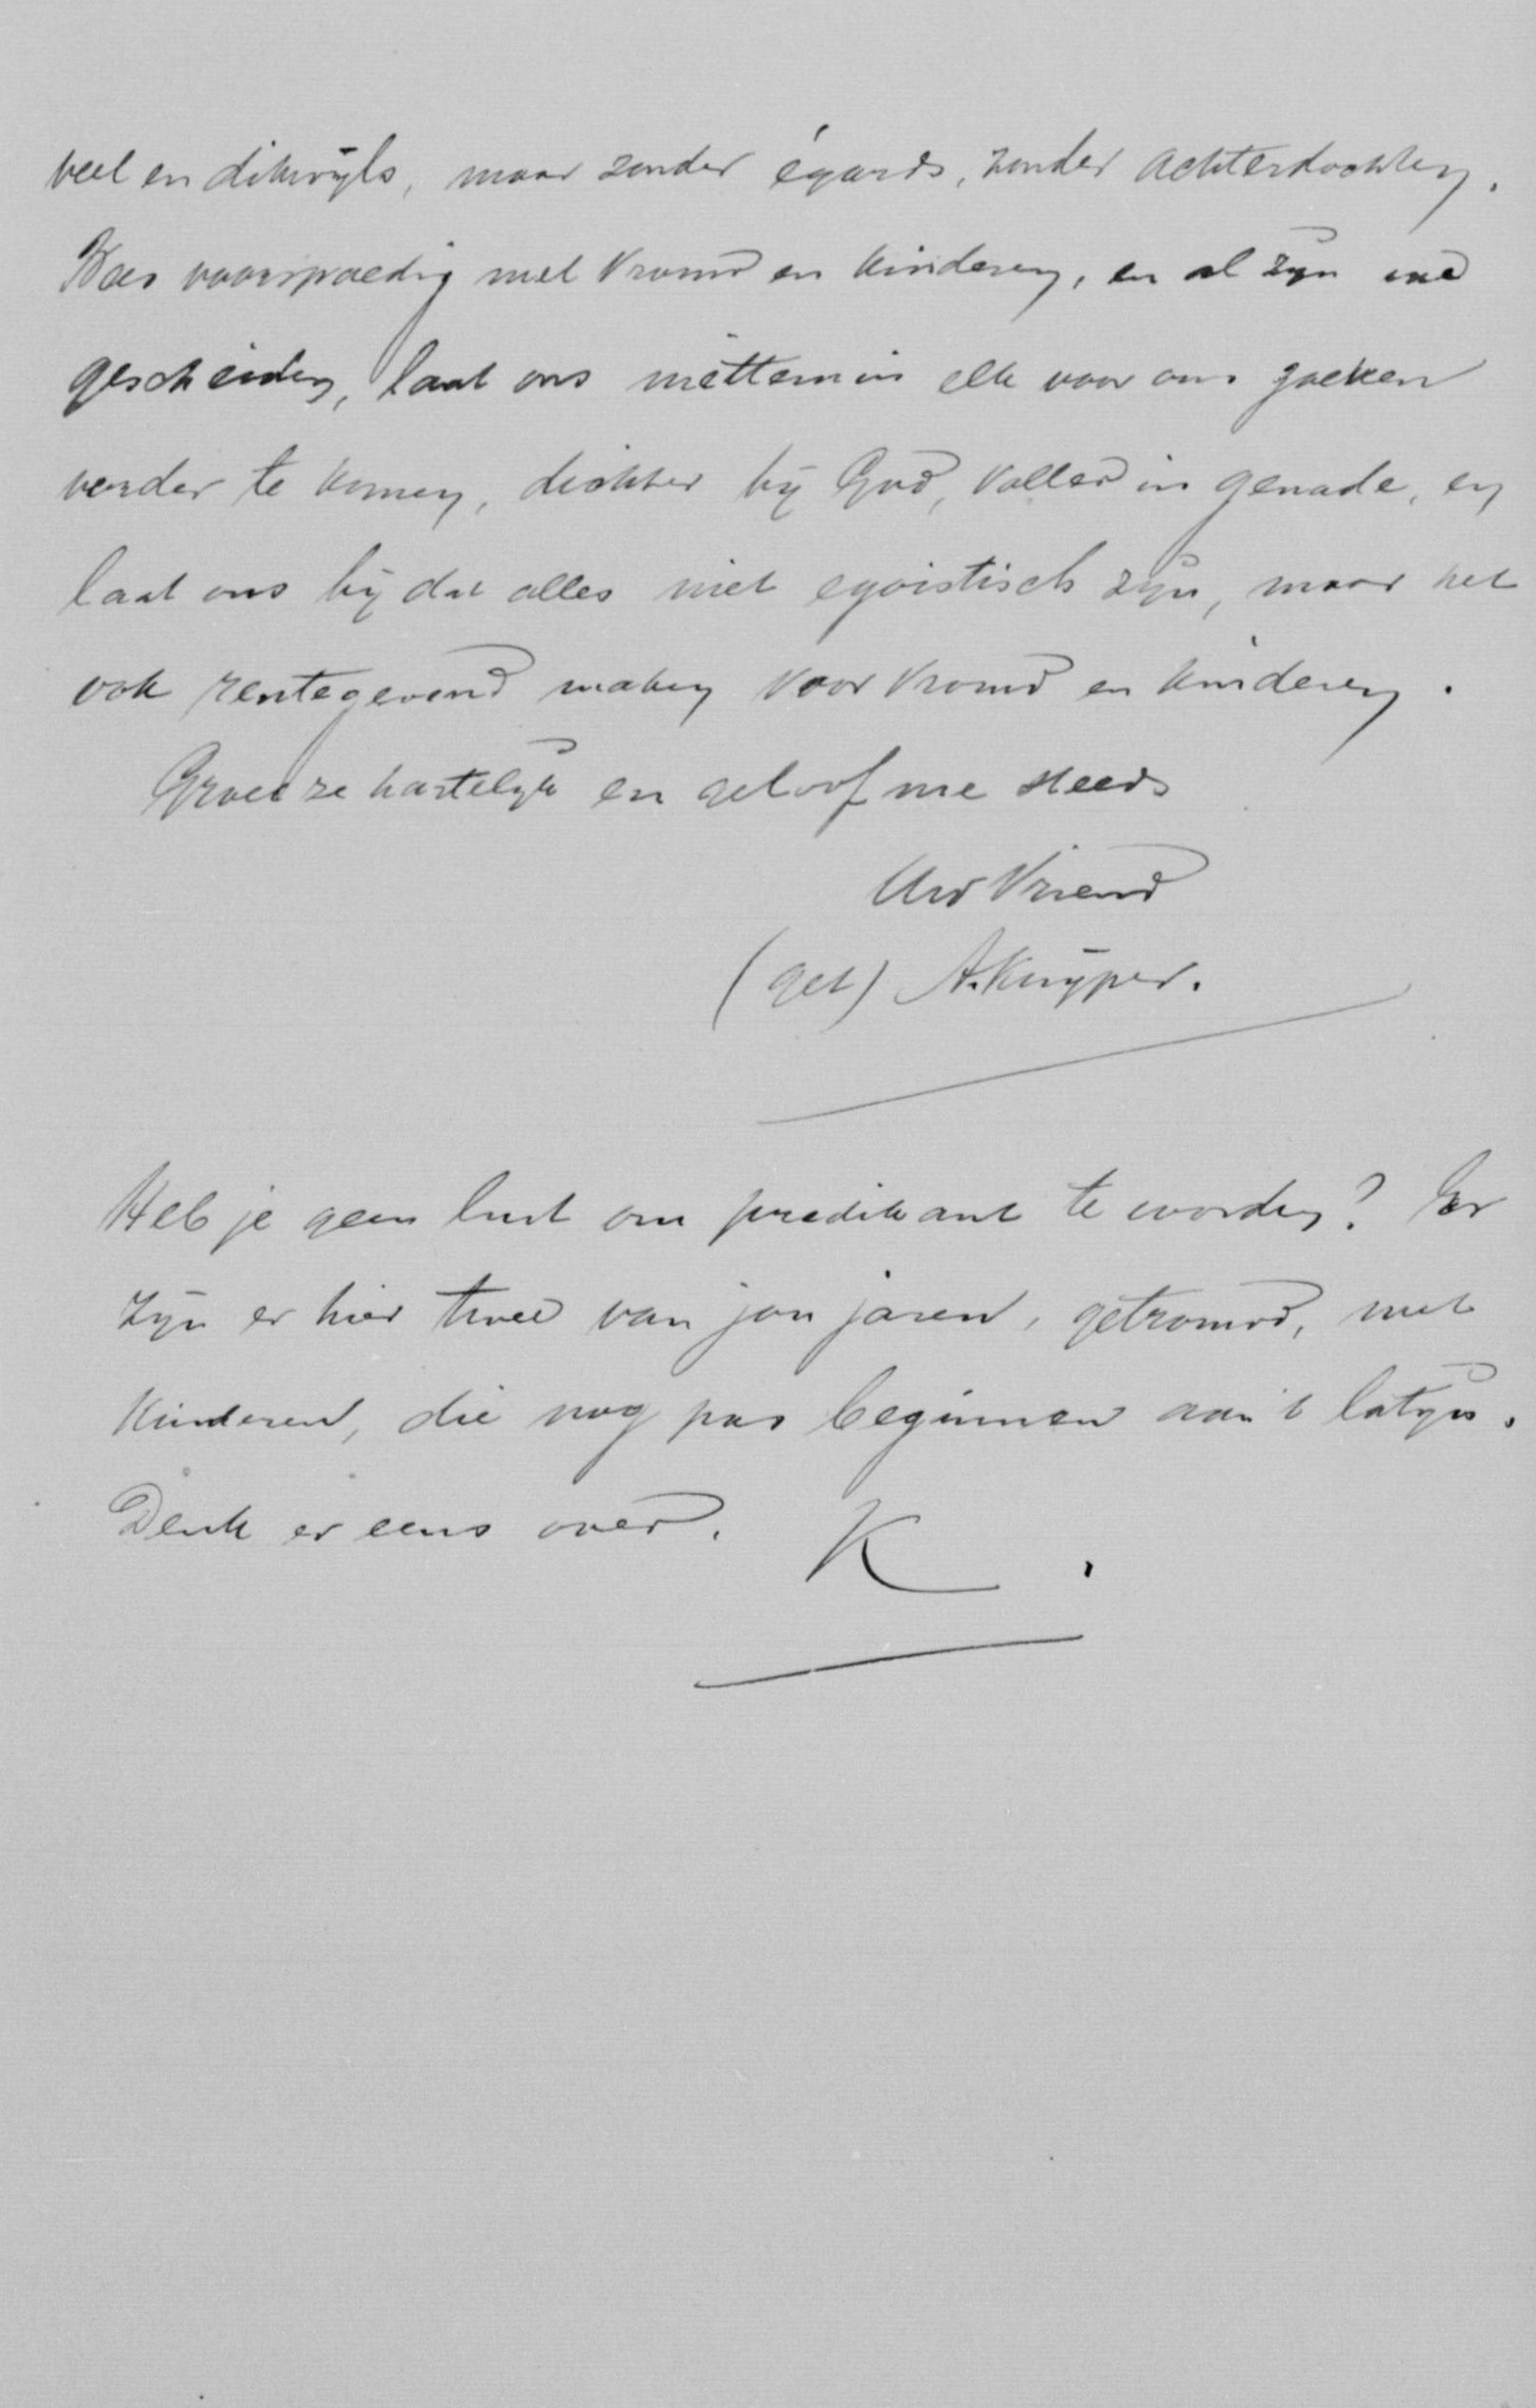 veel en dikwijls, maar zonder égards, zonder achterdochten.
Wees voorspoedig met vrouw en kinderen, en al zijn we
gescheiden, laat ons niettemin elk voor ons zoeken
verder te komen, dichter bij God, voller in genade, en
laat ons bij dat alles niet egoistisch zijn, maar het
ook rentegevend maken voor vrouw en kinderen.
Groet ze hartelijk en geloof me steeds
Uw Vriend
(get) A. Kuyper.
Heb je geen lust om predikant te worden? Er
zijn er hier twee van jou jaren, getrouwd, met
kinderen, die nog pas beginnen aan 't latijn.
Denk er eens over. K.